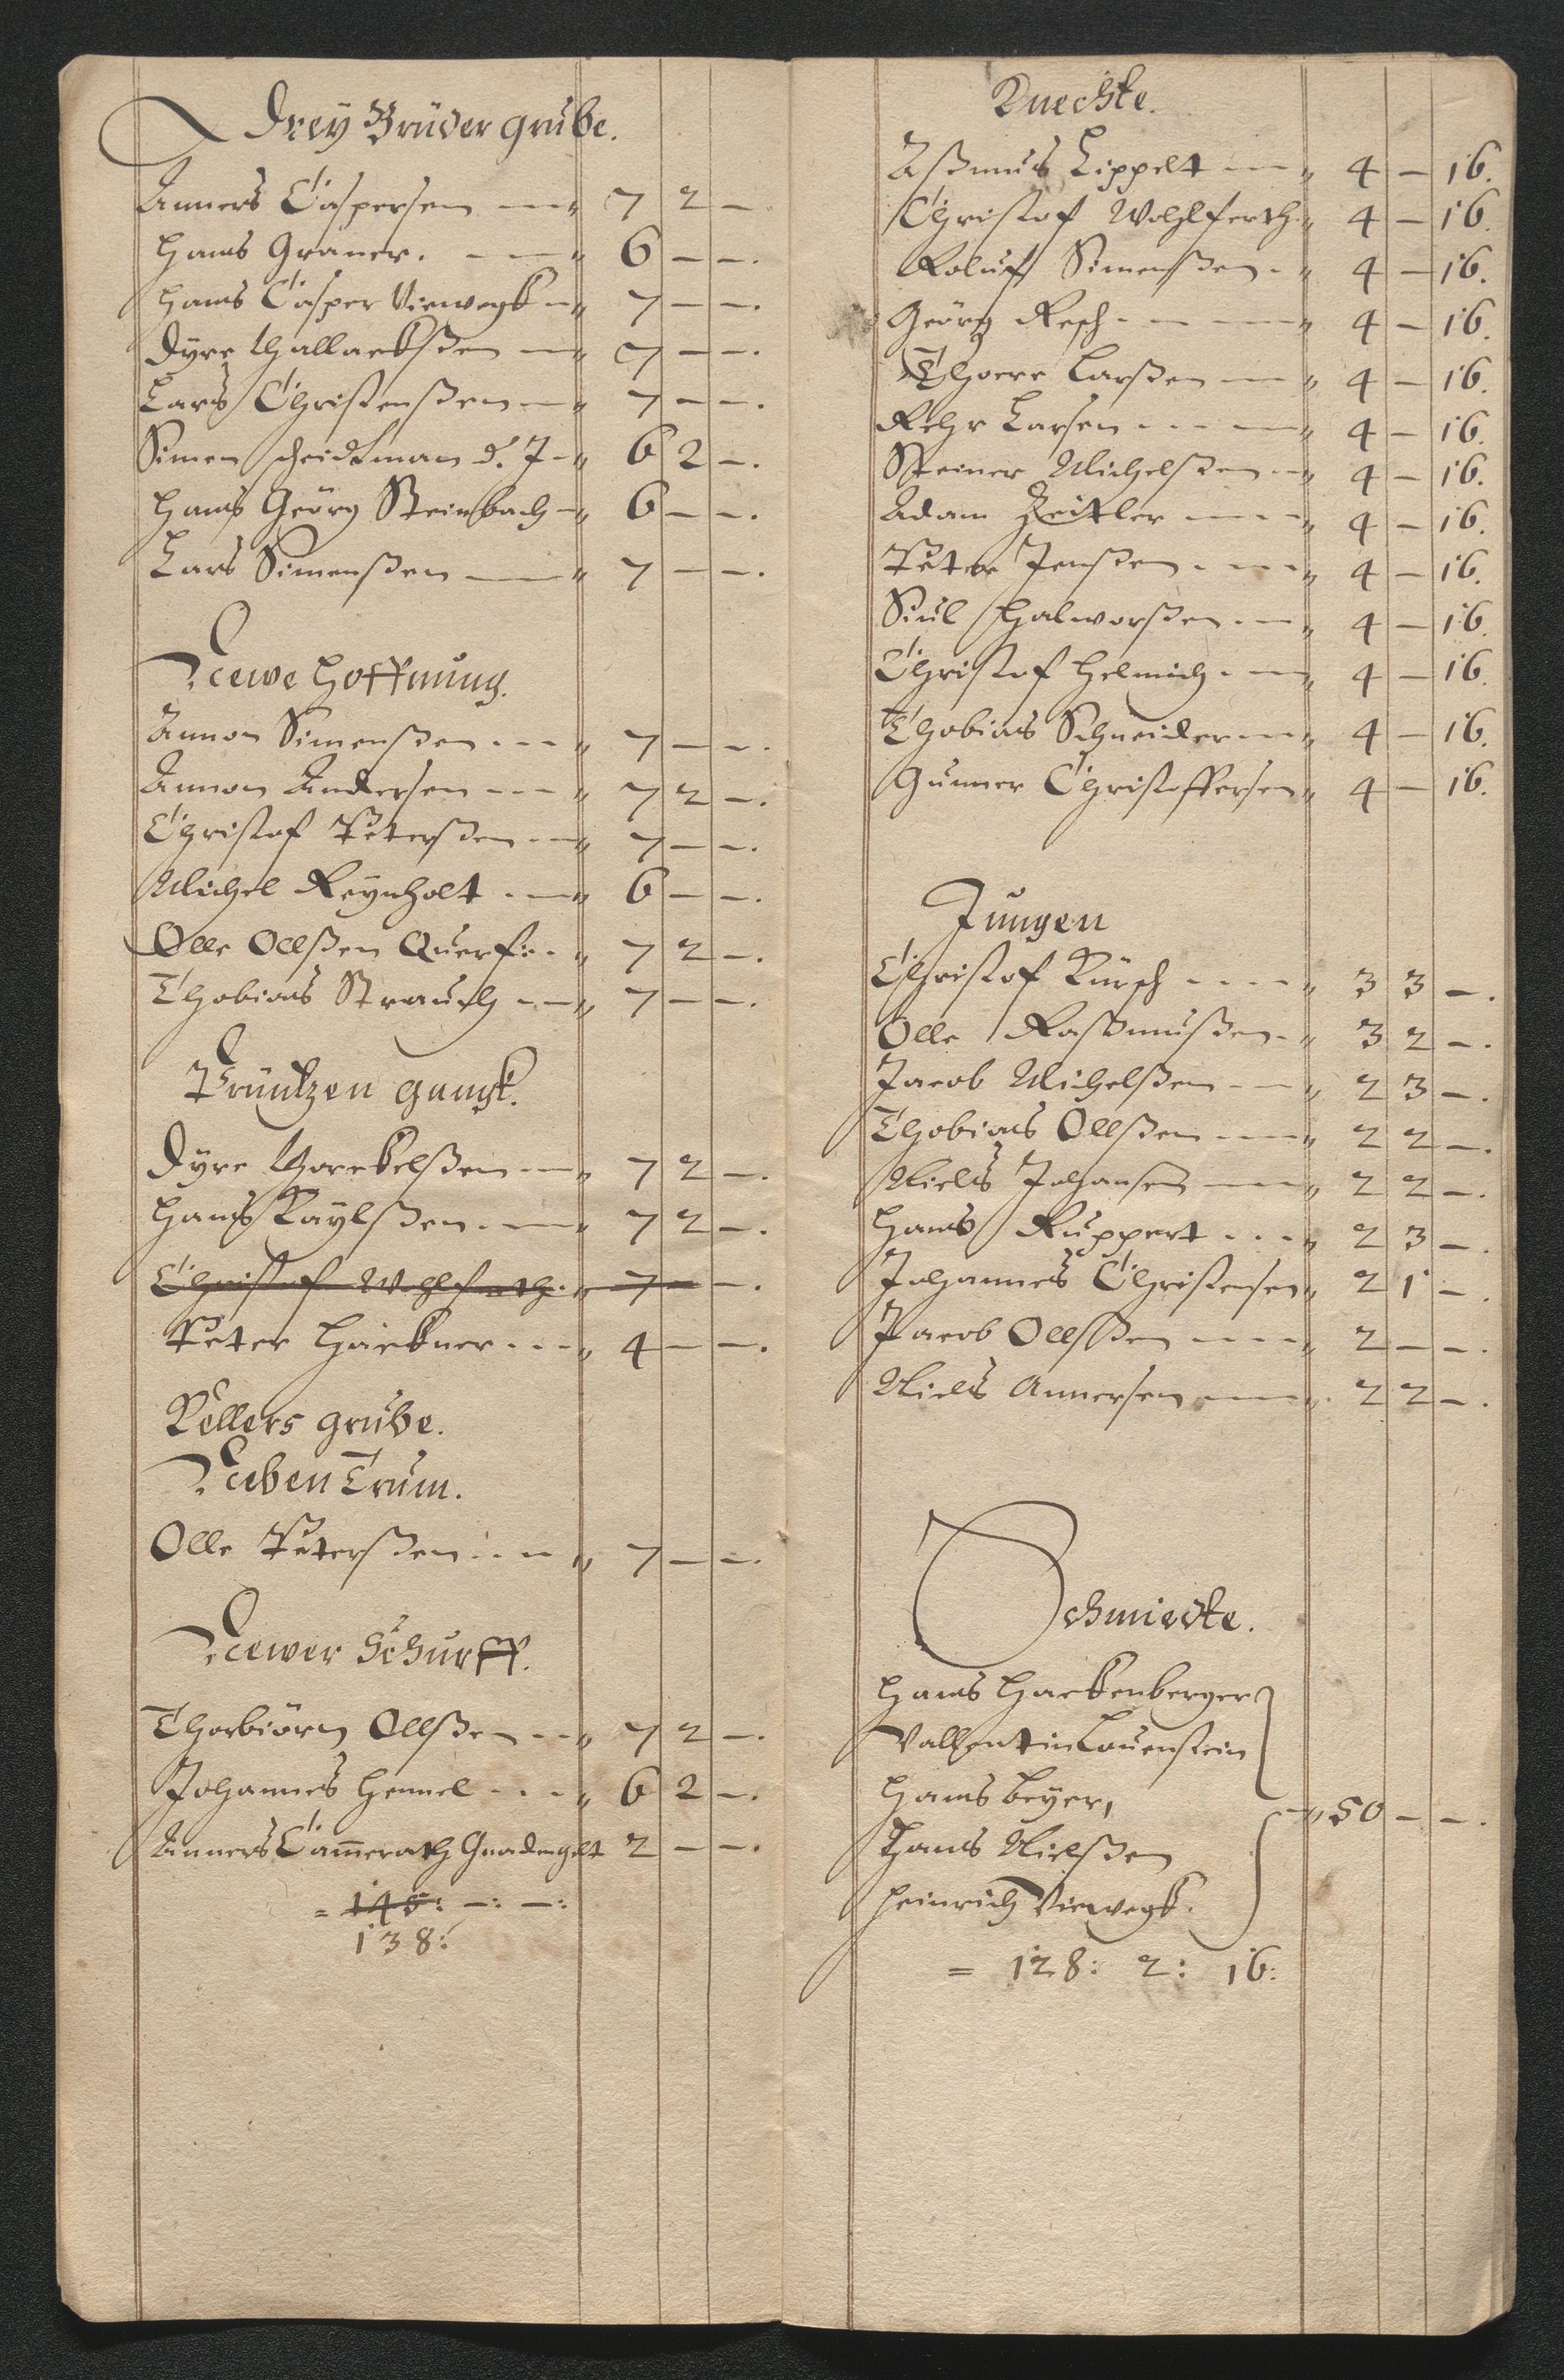 Drey Brüder grube.
Anners Caspersen — „ 7 2 —
Hans Graner. — „ 6 — —.
Hans Casper Viewegk — „ 7 — —.
Dyre Hallackßen — „ 7 — —.
Lars Christensßen — „ 7 — —.
Simen Scheidtman d. J — „ 6 2 —.
Hans Geörg Steinbach — „ 6 — —.
Lars Simenßen — „ 7 — —.
Newe Hoffnung.
Annon Simenßen — „ 7 — —.
Annon Andersen — „ 7 2 —.
Christof Peterßen — „ 7 — —.
Michel Reynholt — „ 6 — —.
Olle Ollßen Querf: — „ 7 2 —.
Thobias Strauch — „ 7 — —.
Printzen gangk.
Dyre Thorckelßen — „ 7 2 —.
Hans Kaylßen — „ 7 2 —.
Christof Wohlfarth. „ 7 — —.
Peter Hackner — „ 4 — —.
Kellers grube.
Neben Trum.
Olle Peterßen — „ 7 — —.
Newer Schurff.
Thorbiörn Ollßen — „ 7 2 —.
Johannes Hennel — „ 6 2 —.
Anners Cammerath Gnadengelt 2 — —.
= 145: —: —:
138:
Knechte.
Aßmus Lippelt — „ 4 — 16.
Christof Wohlferth. „ 4 — 16.
Roluf Simenßen — „ 4 — 16.
Geörg Resch — „ 4 — 16.
Thoere Larßen — „ 4 — 16.
Rehr Larsen — „ 4 — 16.
Steiner Michelßen — „ 4 — 16.
Adam Zeitler — „ 4 — 16.
Peter Jenßen — „ 4 — 16.
Siul Halworßen — „ 4 — 16.
Christof Helmich — „ 4 — 16.
Thobias Schneider — „ 4 — 16.
Gunner Christoffersen „ 4 — 16.
Jungen
Christof Kürsch — „ 3 3 —.
Olle Raßmußen — „ 3 2 —.
Jacob Michelßen — „ 2 3 —.
Thobias Ollßen — „ 2 2 —.
Niels Johansen — „ 2 2 —.
Hans Ruppert — „ 2 3 —.
Johannes Christensen „ 2 1 —.
Jacob Ollßen — „ 2 — —.
Niels Annersen — „ 2 2 —.
Schmiedte.
Hans Hackenberger
Vallentin Lauenstein
Hans Beyer,
Hans Nielßen — „ 50 — —.
Heinrich Viewegk.
= 128: 2: 16: